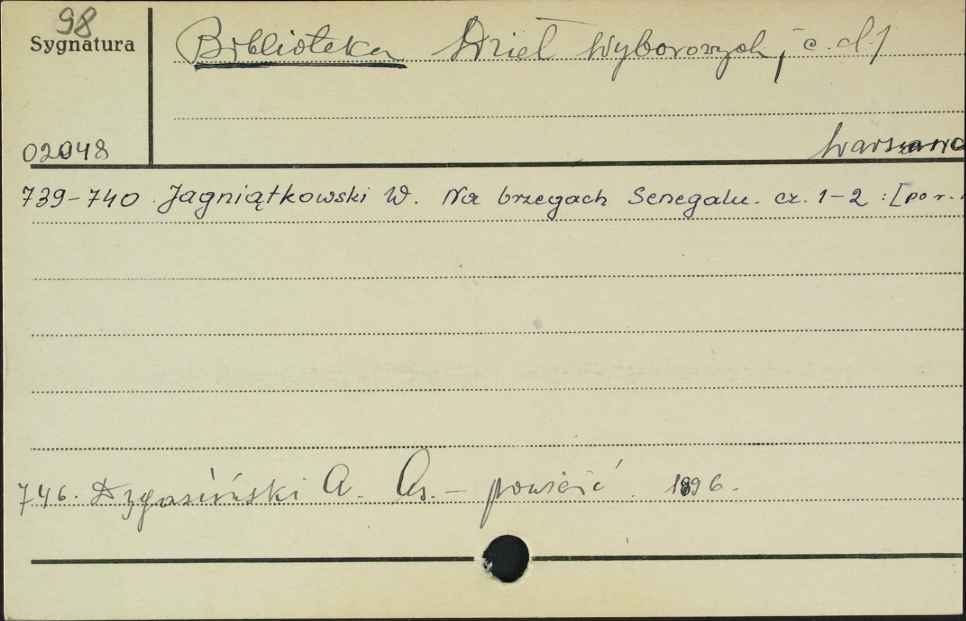 98
Sygnatura
Biblioteka Dzieł Wyborowych, c.d.
02048
Warszawa
739-740 Jagniątkowski W. Na brzegach Senegalu. cz. 1-2 : [por.
746. Dygasiński A. As. - powieść. 1896.